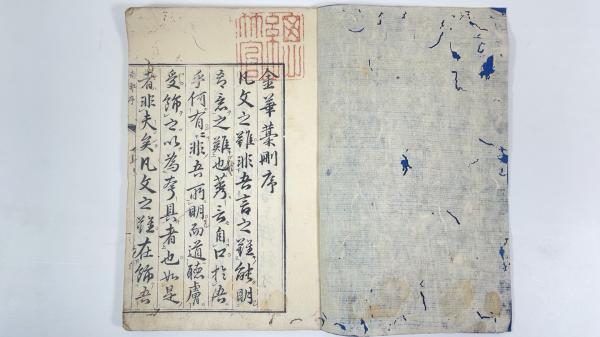 金華藁刪序
凡文之難非吾言之難能明
吾意之難也蓋云自口於吾
乎何有非吾所明而道聽膚
受飾之以為夸具者也如是
者非夫矣凡文之難在飾吾